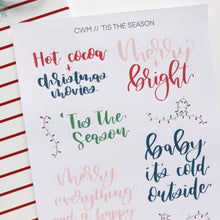 CWM // 'TIS THE SEASON
Hot cocoa
+
christmas
movies
Merry
+
bright
'Tis The
Season
baby
it's cold
outside
Merry
everything
and a happy